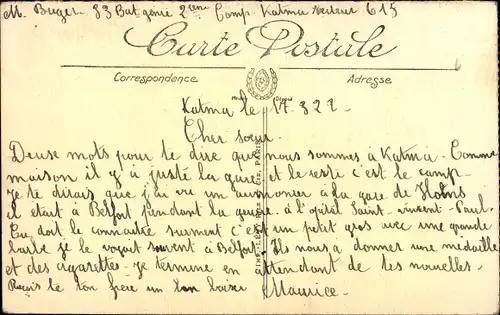 M. Buget 33 Bat genie 2eme Comp. Katma Secteur 615
Carte Postale
Correspondance Adresse
Katma le 322
Cher sœur.
Deuse mots pour te dire que nous sommes à Katma. Comme
maison il y à juste la gare et le reste c'est le camp.
Je te dirais que j'ai vu un aumonier à la gare de Homs
il était à Belfort pendant la guerre à l'opital Saint vincent Paul.
Tu doit le connaitre surment c'est un petit gros avec une grande
barbe je le voyait souvent à Belfort. Ils nous a donner une medaille
et des cigarettes. je termine en attendant de tes nouvelles.
Reçois de ton frere un bon baiser Maurice.